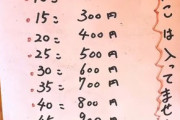 15= 300円
20= 400円
25= 500円
30= 600円
35= 700円
40= 800円
こは入ってませ